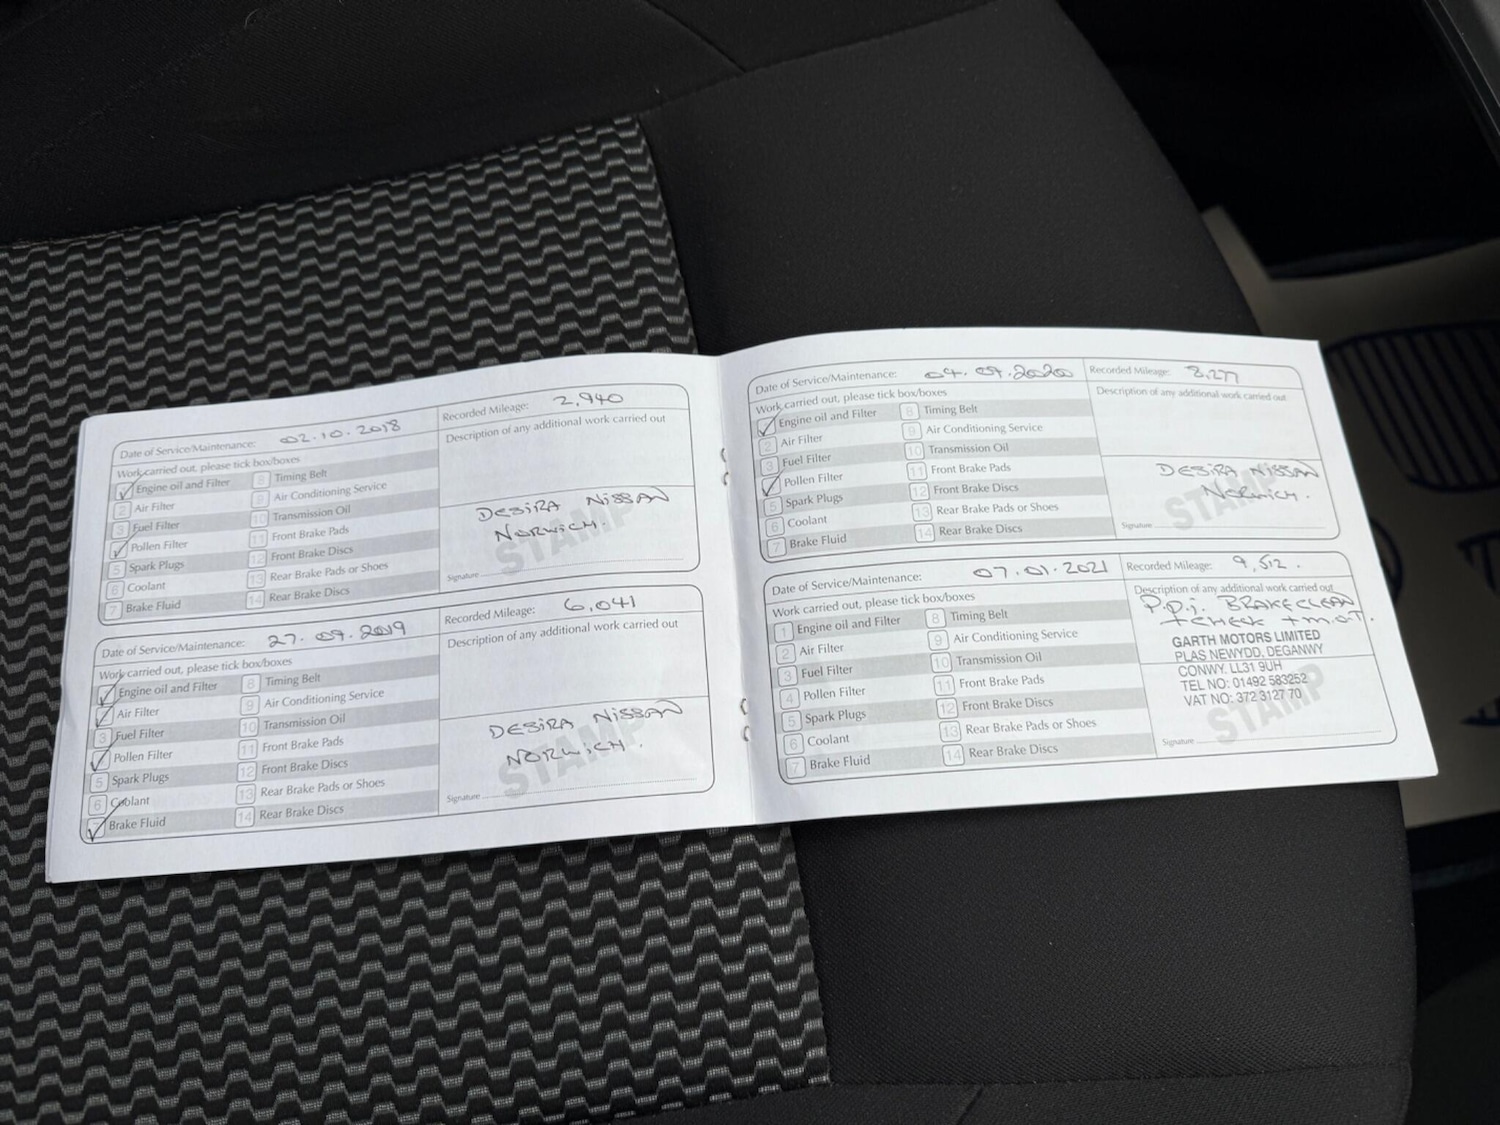 Date of Service/Maintenance: 02.10.2018
Recorded Mileage: 2,940
Work carried out, please tick box/boxes
Description of any additional work carried out
Engine oil and Filter
8 Timing Belt
2 Air Filter
9 Air Conditioning Service
3 Fuel Filter
10 Transmission Oil
Pollen Filter
11 Front Brake Pads
5 Spark Plugs
12 Front Brake Discs
6 Coolant
13 Rear Brake Pads or Shoes
7 Brake Fluid
14 Rear Brake Discs
DESIRA NISSAN
NORWICH.
STAMP
Signature
Date of Service/Maintenance: 27.09.2019
Recorded Mileage: 6,041
Work carried out, please tick box/boxes
Description of any additional work carried out
Engine oil and Filter
8 Timing Belt
Air Filter
9 Air Conditioning Service
3 Fuel Filter
10 Transmission Oil
Pollen Filter
11 Front Brake Pads
5 Spark Plugs
12 Front Brake Discs
6 Coolant
13 Rear Brake Pads or Shoes
7 Brake Fluid
14 Rear Brake Discs
DESIRA NISSAN
NORWICH.
STAMP
Signature
Date of Service/Maintenance: 04.09.2020
Recorded Mileage: 8,277
Work carried out, please tick box/boxes
Description of any additional work carried out
Engine oil and Filter
8 Timing Belt
2 Air Filter
9 Air Conditioning Service
3 Fuel Filter
10 Transmission Oil
Pollen Filter
11 Front Brake Pads
5 Spark Plugs
12 Front Brake Discs
6 Coolant
13 Rear Brake Pads or Shoes
7 Brake Fluid
14 Rear Brake Discs
DESIRA NISSAN
NORWICH.
STAMP
Signature
Date of Service/Maintenance: 07.01.2021
Recorded Mileage: 9,512.
Work carried out, please tick box/boxes
Description of any additional work carried out
1 Engine oil and Filter
8 Timing Belt
2 Air Filter
9 Air Conditioning Service
3 Fuel Filter
10 Transmission Oil
4 Pollen Filter
11 Front Brake Pads
5 Spark Plugs
12 Front Brake Discs
6 Coolant
13 Rear Brake Pads or Shoes
7 Brake Fluid
14 Rear Brake Discs
P.D.i. BRAKE CLEAN
+ CHECK + M.O.T.
GARTH MOTORS LIMITED
PLAS NEWYDD, DEGANWY
CONWY. LL31 9UH
TEL NO: 01492 583252
VAT NO: 372 3127 70
STAMP
Signature